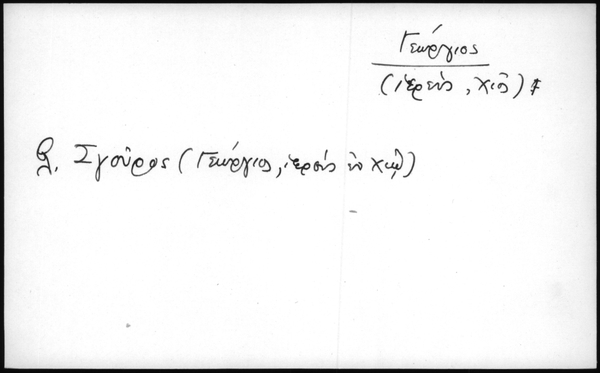 Γεώργιος
(ἱερεύς, Χίος)
βλ. Σγοῦρος (Γεώργιος, ἱερεύς ἐν Χίῳ)